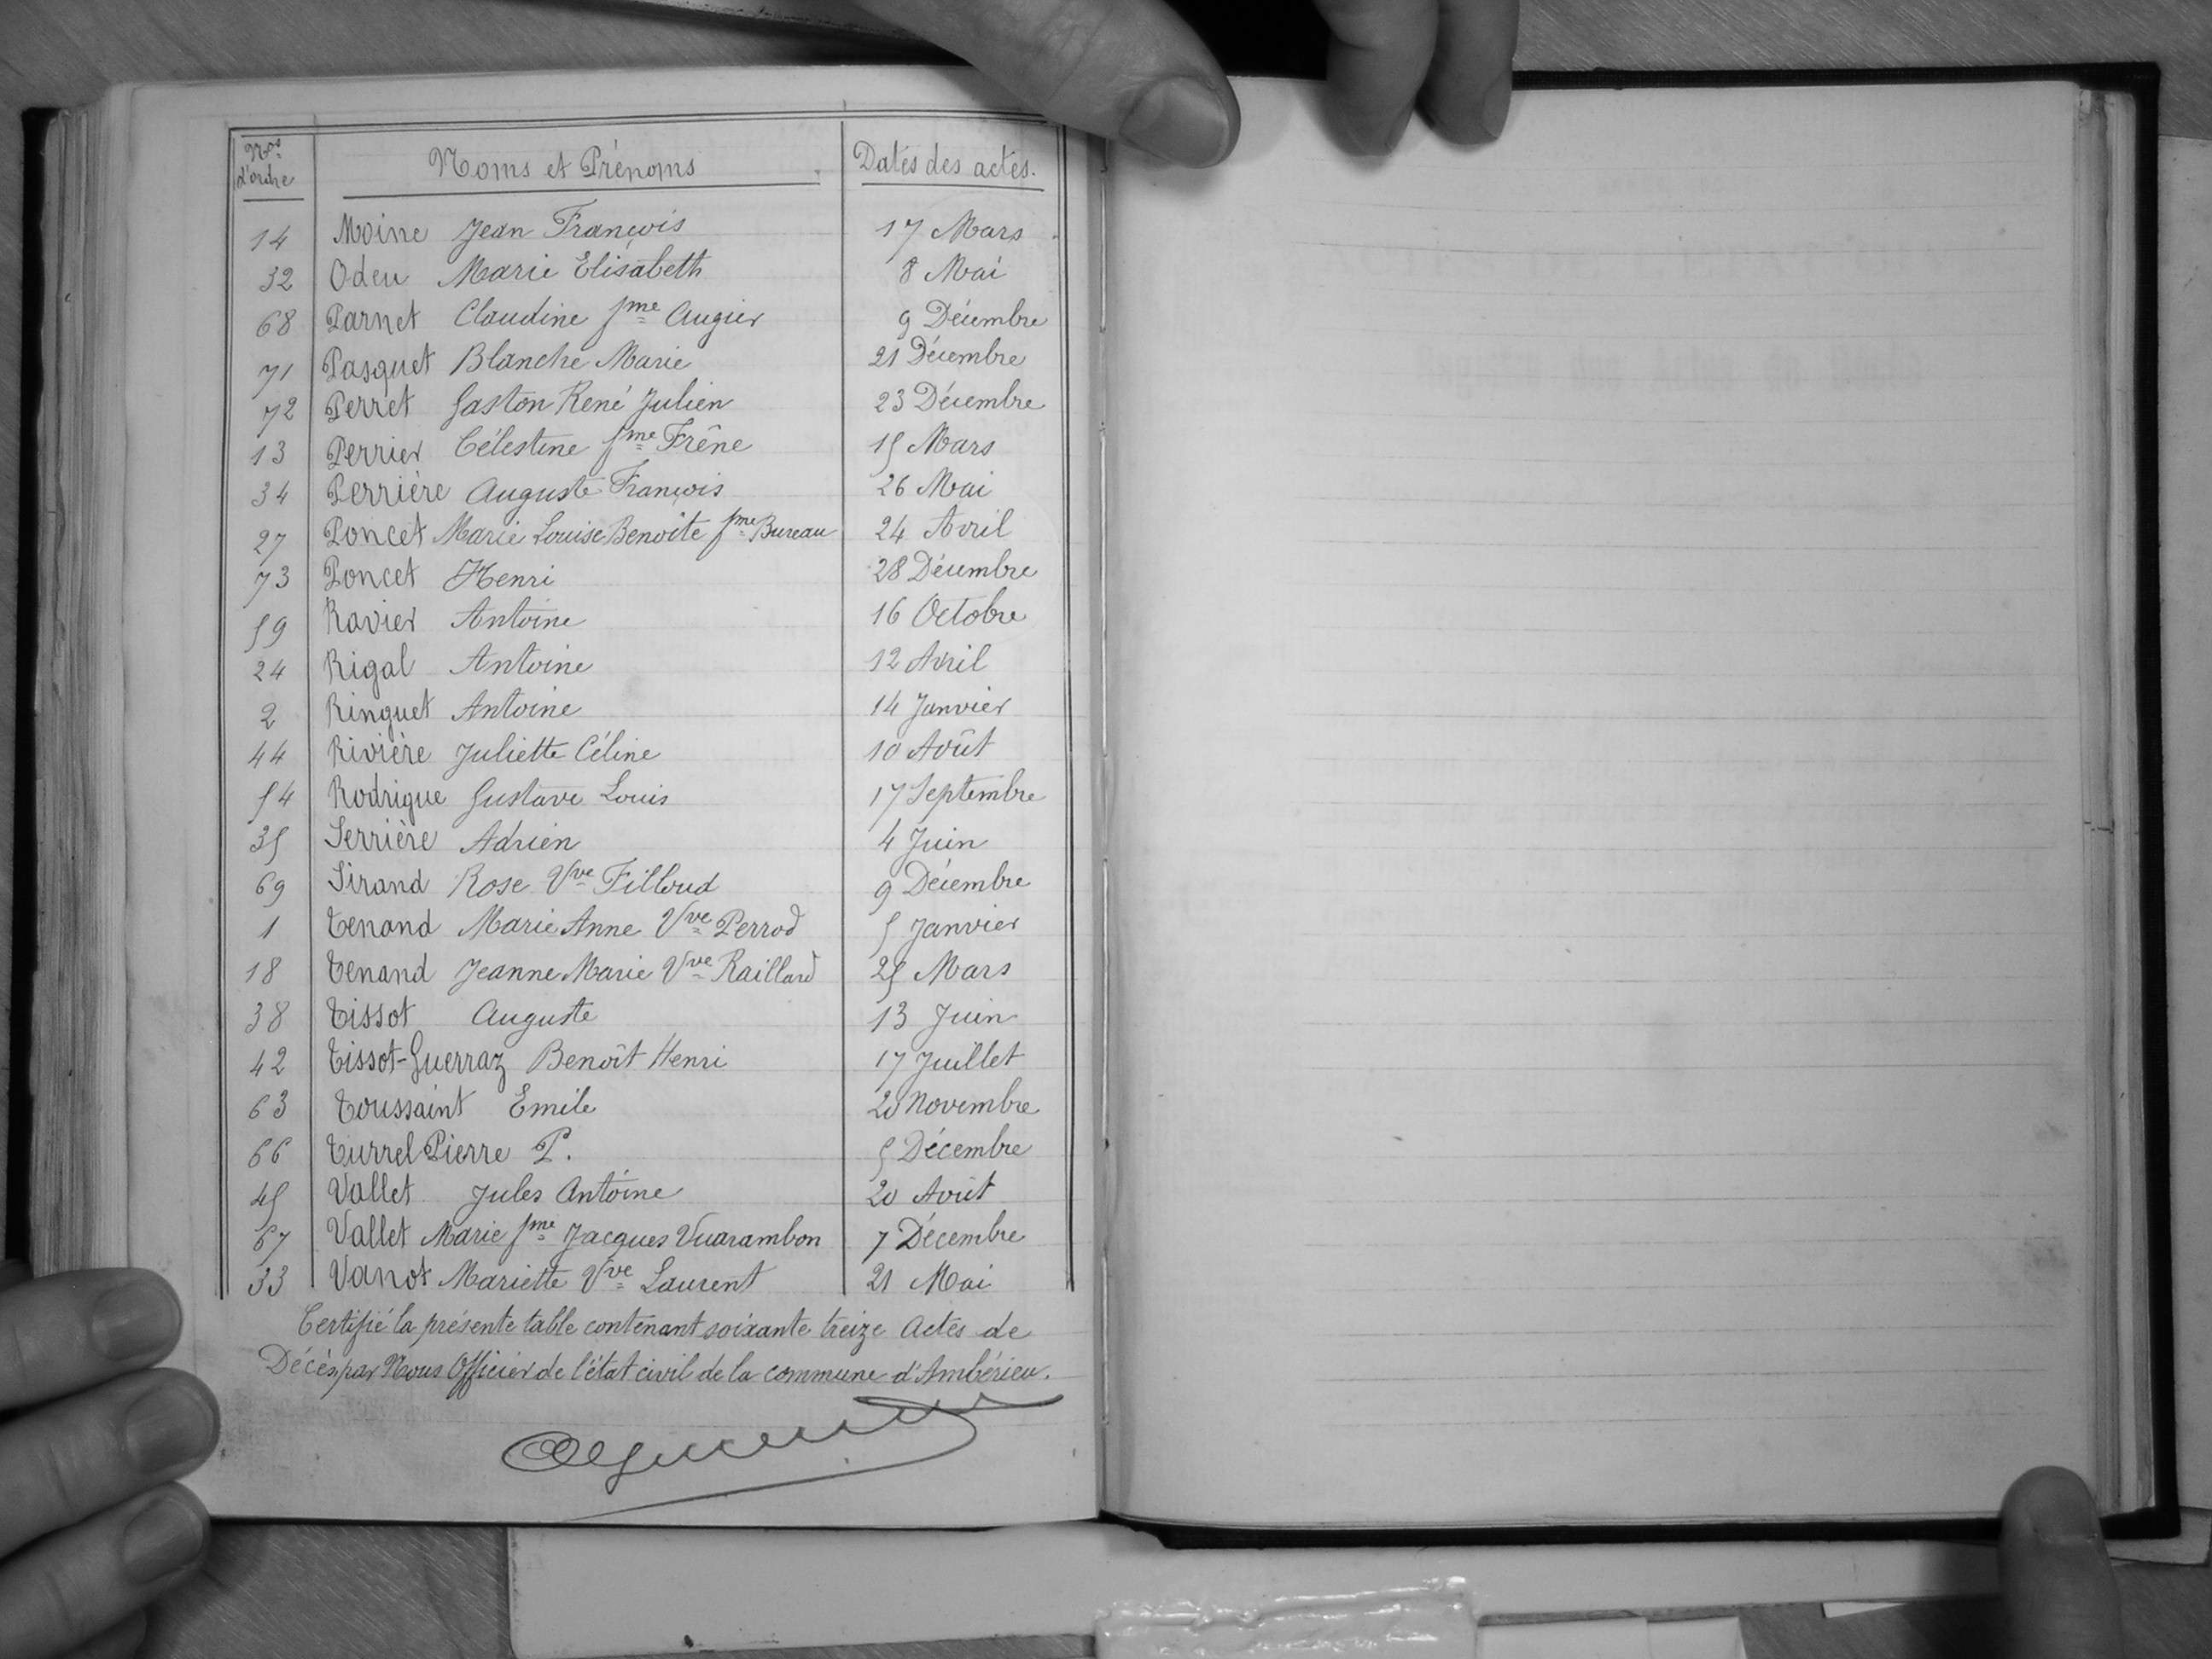 Nos d'ordre Noms et Prénoms Dates des actes.
14 Moine Jean François 17 Mars
32 Odeu Marie Elisabeth 8 Mai
68 Parnet Claudine fme Augier 9 Décembre
71 Pasquet Blanche Marie 21 Décembre
72 Perret Gaston René Julien 23 Décembre
13 Perrier Célestine fme Frêne 15 Mars
34 Perrière Auguste François 26 Mai
27 Poncet Marie Louise Benoîte fme Bureau 24 Avril
73 Poncet Henri 28 Décembre
59 Ravier Antoine 16 Octobre
24 Rigal Antoine 12 Avril
2 Ringuet Antoine 14 Janvier
44 Rivière Juliette Céline 10 Août
54 Rodrigue Gustave Louis 17 Septembre
35 Serrière Adrien 4 Juin
69 Sirand Rose Vve Filloud 9 Décembre
1 Tenand Marie Anne Vve Perrod 5 Janvier
18 Tenand Jeanne Marie Vve Raillard 25 Mars
38 Tissot Auguste 13 Juin
42 Tissot-Guerraz Benoît Henri 17 Juillet
63 Toussaint Emile 20 Novembre
66 Turrel Pierre P. 5 Décembre
45 Vallet Jules Antoine 20 Août
67 Vallet Marie fme Jacques Vuarambon 7 Décembre
33 Vanot Mariette Vve Laurent 21 Mai
Certifié la présente table contenant soixante treize Actes de
Décès par Nous Officier de l'état civil de la commune d'Ambérieu.